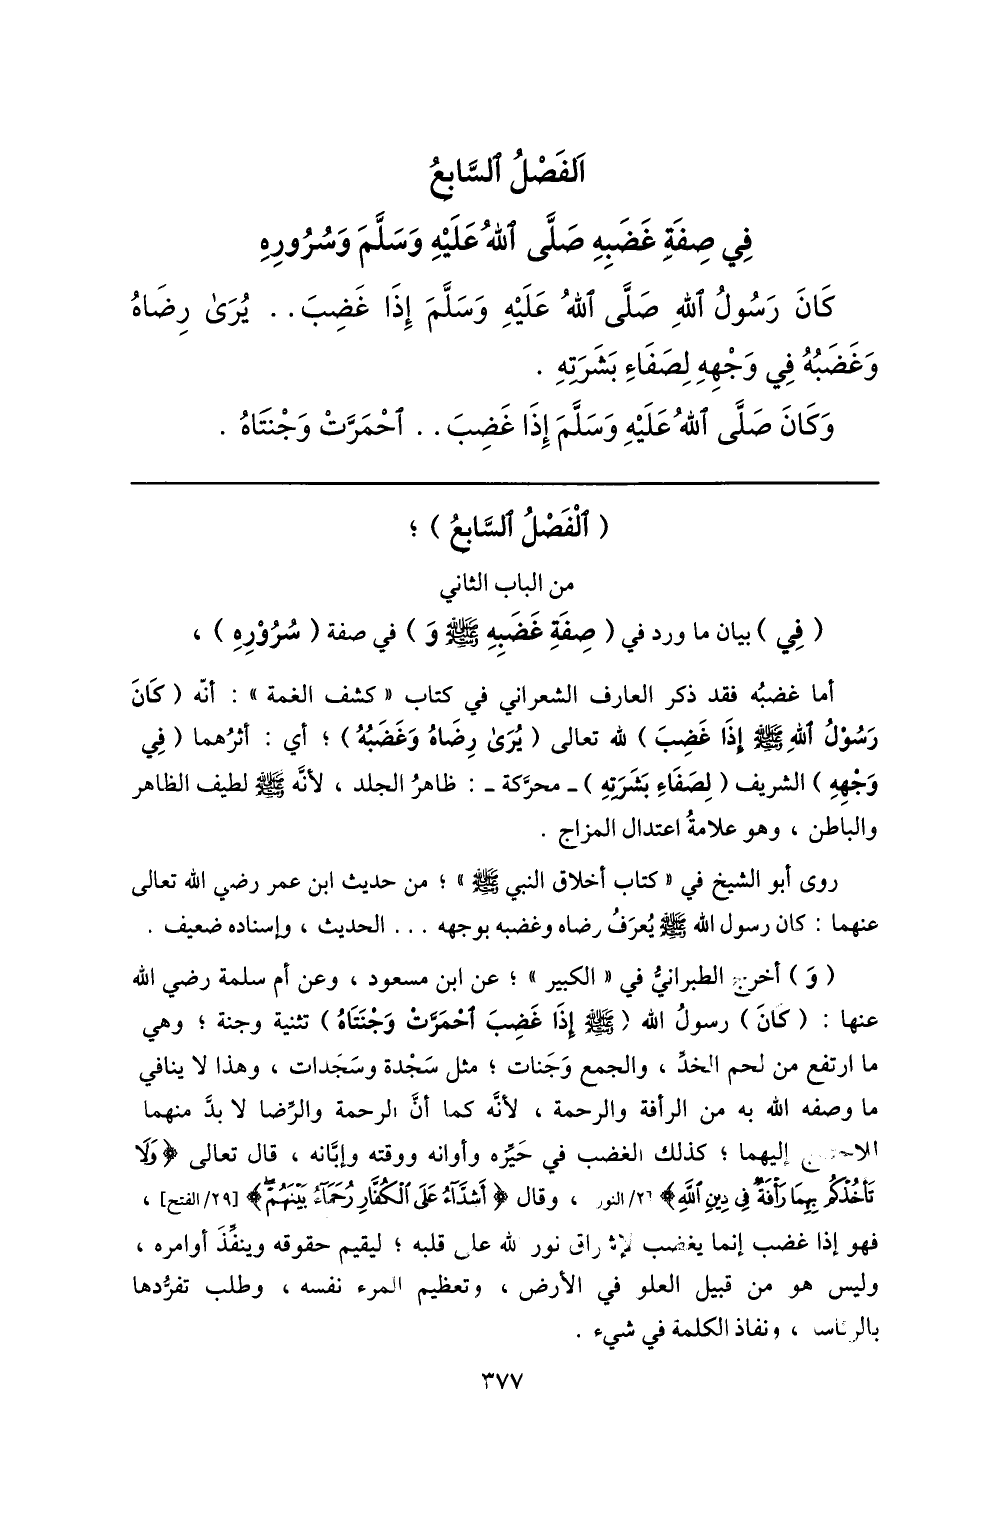 اَلفَصْلُ ٱلسَّابِعُ
فِي صِفَةِ غَضَبِهِ صَلَّى ٱللهُ عَلَيْهِ وَسَلَّمَ وَسُرُورِهِ
كَانَ رَسُولُ ٱللهِ صَلَّى ٱللهُ عَلَيْهِ وَسَلَّمَ إِذَا غَضِبَ.. يُرَىٰ رِضَاهُ
وَغَضَبُهُ فِي وَجْهِهِ لِصَفَاءِ بَشَرَتِهِ .
وَكَانَ صَلَّى ٱللهُ عَلَيْهِ وَسَلَّمَ إِذَا غَضِبَ.. ٱحْمَرَّتْ وَجْنَتَاهُ .
( ٱلْفَصْلُ ٱلسَّابِعُ ) ؛
من الباب الثاني
( فِي ) بيان ما ورد في ( صِفَةِ غَضَبِهِ ﷺ وَ ) في صفة ( سُرُوْرِهِ ) ،
أما غضبُه فقد ذكر العارف الشعراني في كتاب « كشف الغمة » : أنّه ( كَانَ
رَسُوْلُ ٱللهِ ﷺ إِذَا غَضِبَ ) لله تعالى ( يُرَىٰ رِضَاهُ وَغَضَبُهُ ) ؛ أي : أثرُهما ( فِي
وَجْهِهِ ) الشريف ( لِصَفَاءِ بَشَرَتِهِ ) ـ محرَّكة ـ : ظاهرُ الجلد ، لأنَّه ﷺ لطيف الظاهر
والباطن ، وهو علامةُ اعتدال المزاج .
روى أبو الشيخ في « كتاب أخلاق النبي ﷺ » ؛ من حديث ابن عمر رضي الله تعالى
عنهما : كان رسول الله ﷺ يُعرَفُ رضاه وغضبه بوجهه ... الحديث ، وإسناده ضعيف .
( وَ ) أخرج الطبرانيُّ في « الكبير » ؛ عن ابن مسعود ، وعن أم سلمة رضي الله
عنها : ( كَانَ ) رسولُ الله ( ﷺ إِذَا غَضِبَ ٱحْمَرَّتْ وَجْنَتَاهُ ) تثنية وجنة ؛ وهي
ما ارتفع من لحم الخدِّ ، والجمع وَجَنات ؛ مثل سَجْدة وسَجَدات ، وهذا لا ينافي
ما وصفه الله به من الرأفة والرحمة ، لأنَّه كما أنَّ الرحمة والرِّضا لا بدَّ منهما
إليهما ؛ كذلك الغضب في حَيِّزه وأوانه ووقته وإبَّانه ، قال تعالى ﴿ وَلَا
تَأْخُذْكُم بِهِمَا رَأْفَةٌ فِي دِينِ ٱللَّهِ ﴾ /النور ، وقال ﴿ أَشِدَّآءُ عَلَى ٱلْكُفَّارِ رُحَمَآءُ بَيْنَهُمْ ﴾ [٢٩/ الفتح] ،
فهو إذا غضب إنما يغضب لإشراق نور الله على قلبه ؛ ليقيم حقوقه وينفِّذَ أوامره ،
وليس هو من قبيل العلو في الأرض ، وتعظيم المرء نفسه ، وطلب تفرُّدها
، ونفاذ الكلمة في شيء .
٣٧٧